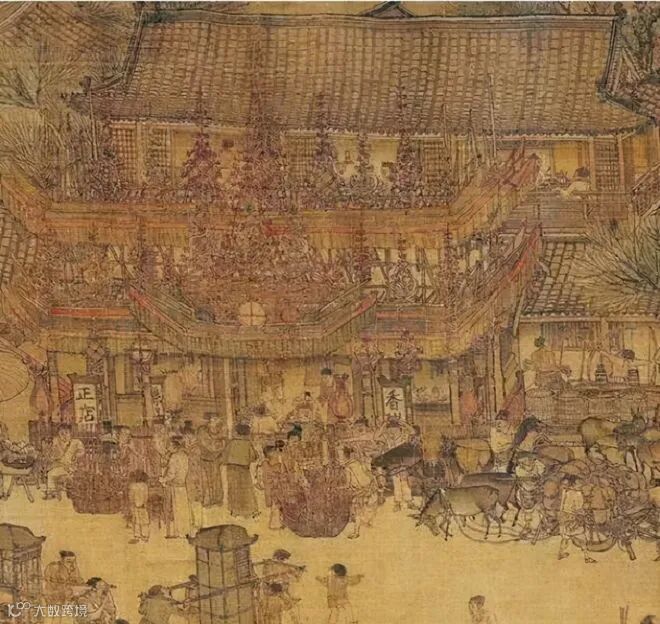 正店
香
大数跨境